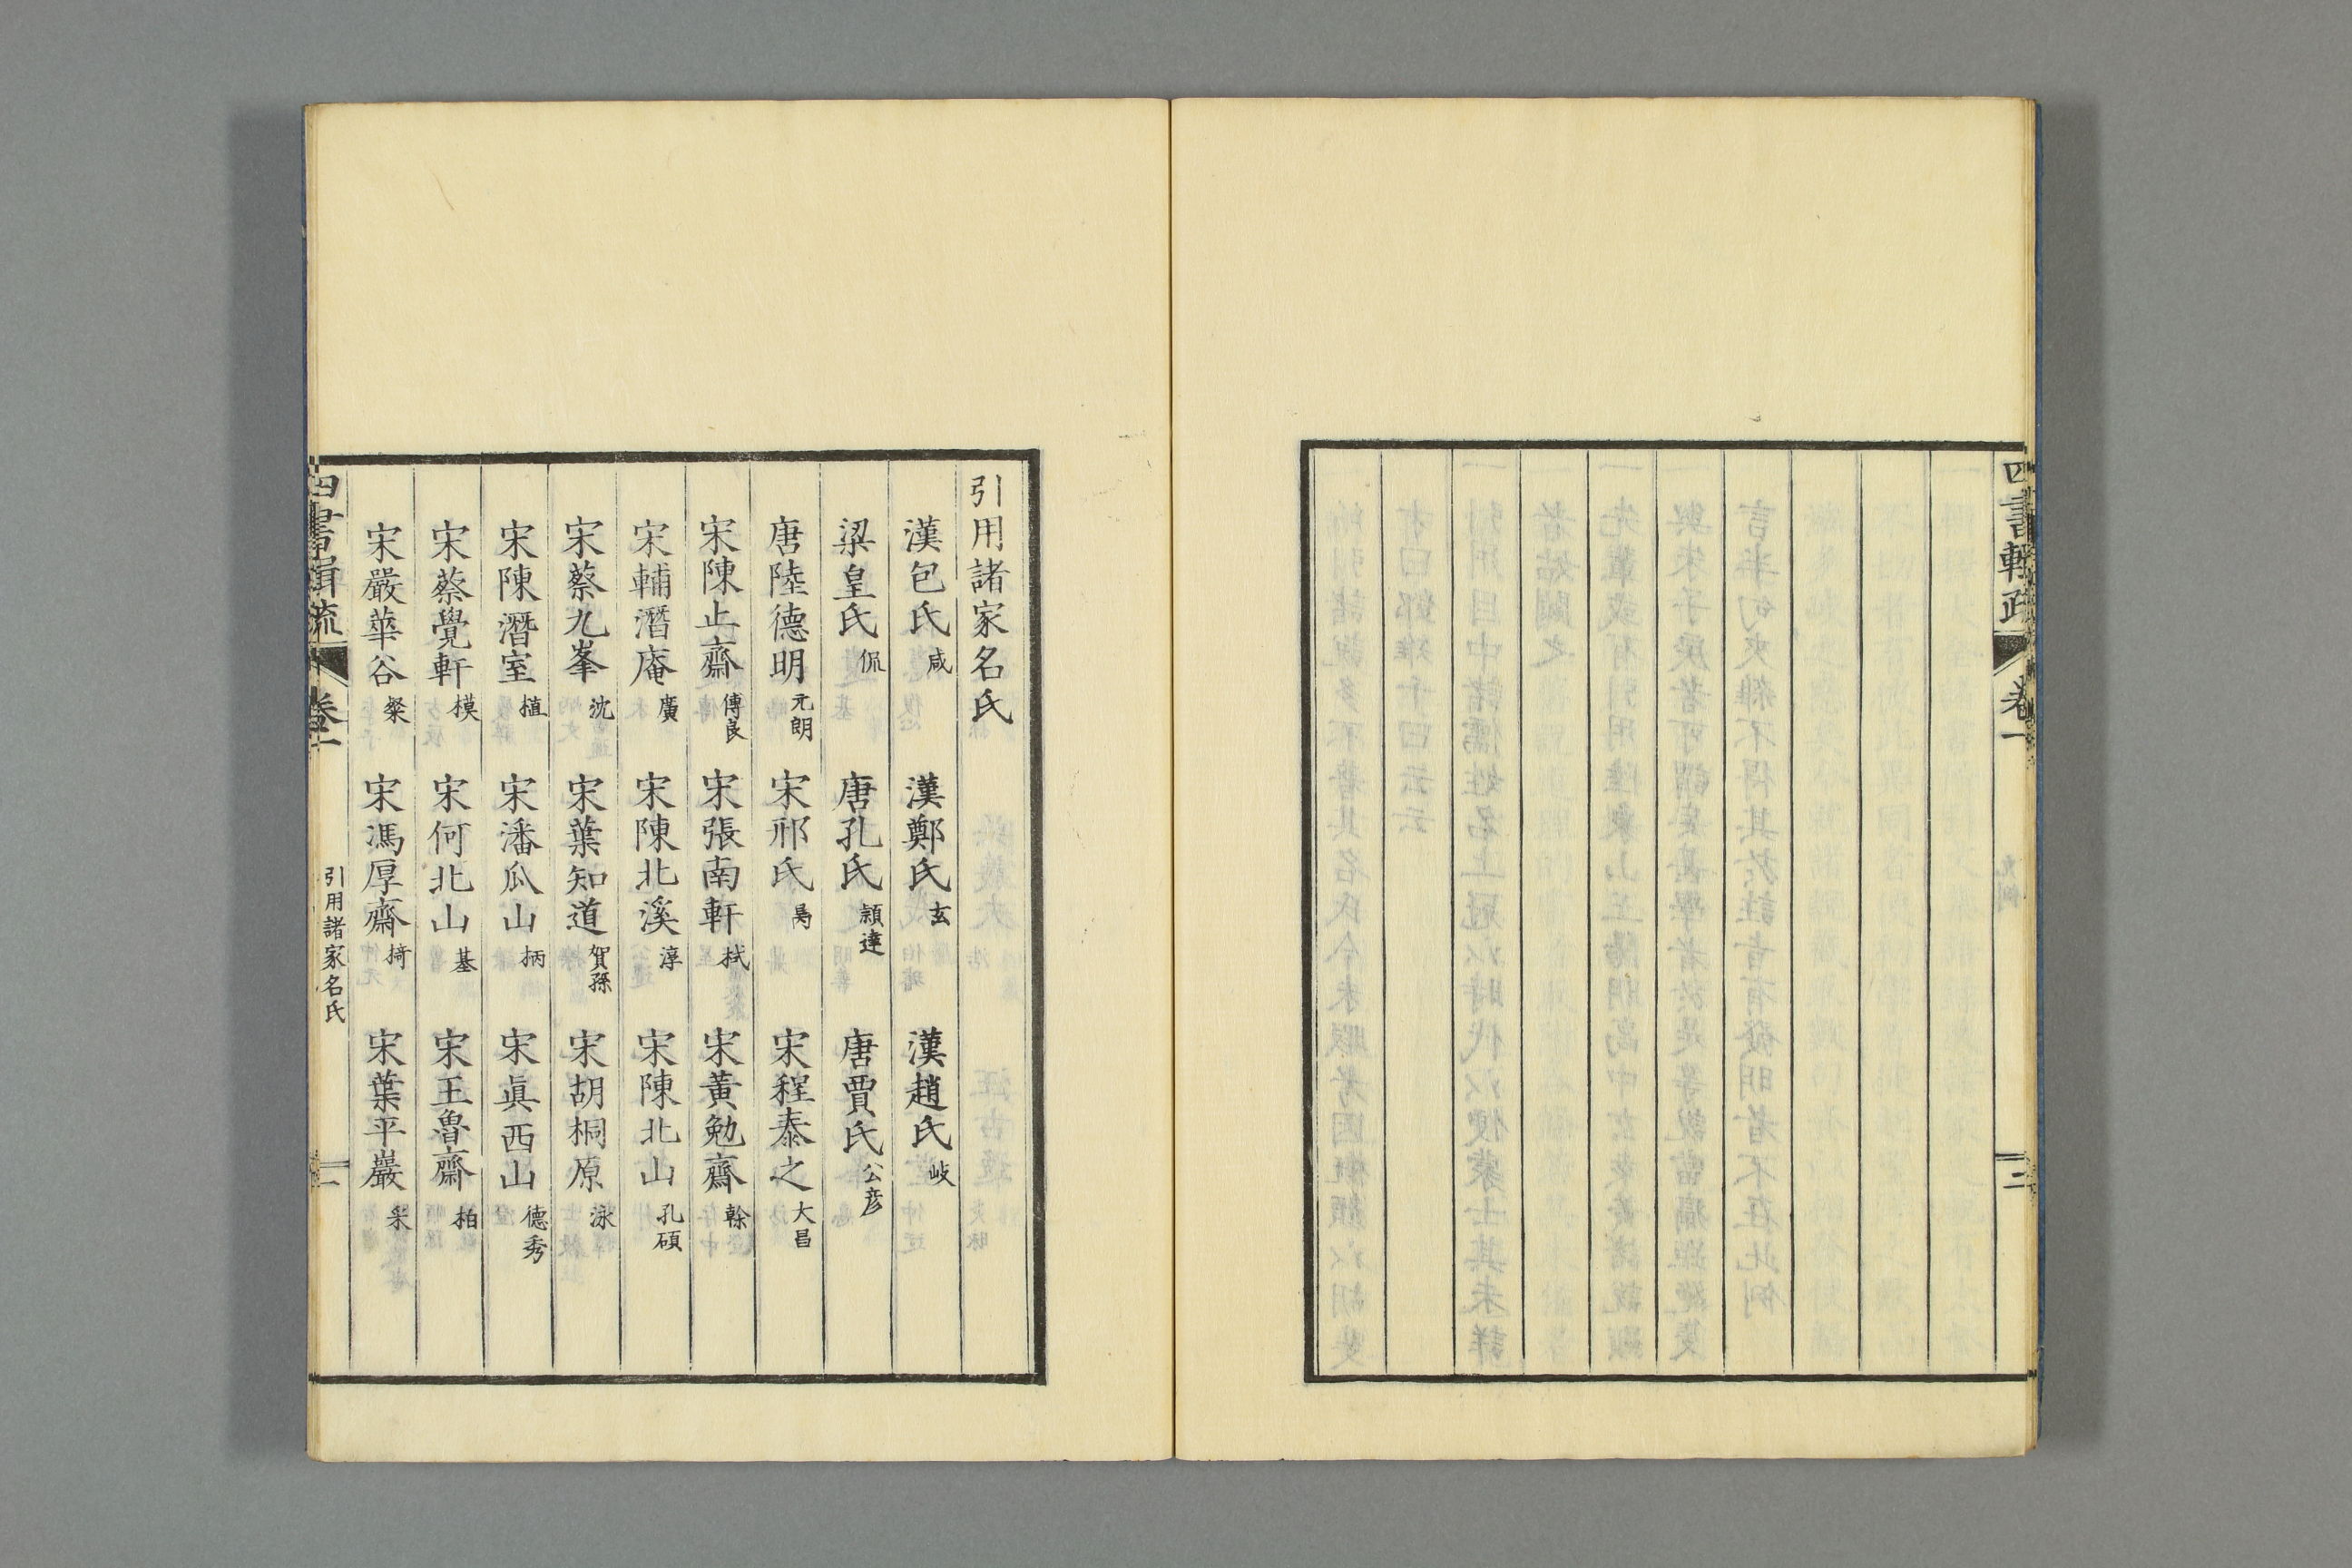 四書輯疏
卷一
二
引用諸家名氏
漢包氏咸 漢鄭氏玄 漢趙氏岐
梁皇氏侃 唐孔氏頴達 唐賈氏公彦
唐陸德明元朗 宋邢氏昺 宋程泰之大昌
宋陳止齋傅良 宋張南軒栻 宋黃勉齋榦
宋輔潛庵廣 宋陳北溪淳 宋陳北山孔碩
宋蔡九峯沈 宋葉知道賀孫 宋胡桐原泳
宋陳潛室植 宋潘瓜山柄 宋眞西山德秀
宋蔡覺軒模 宋何北山基 宋王魯齋柏
宋嚴華谷粲 宋馮厚齋椅 宋葉平巖采
四書輯疏
卷一
引用諸家名氏
一